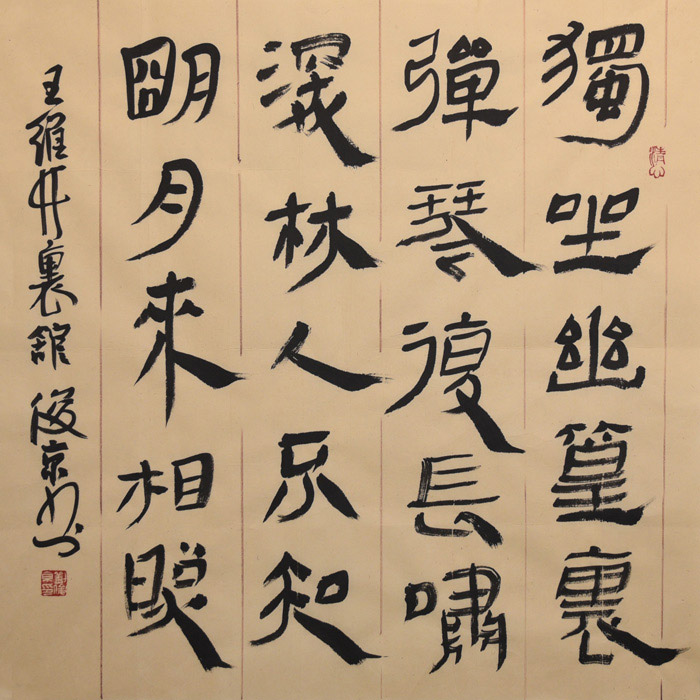 獨坐幽篁裏
彈琴復長嘯
深林人不知
朙月來相照
王維竹裏館 俊京书